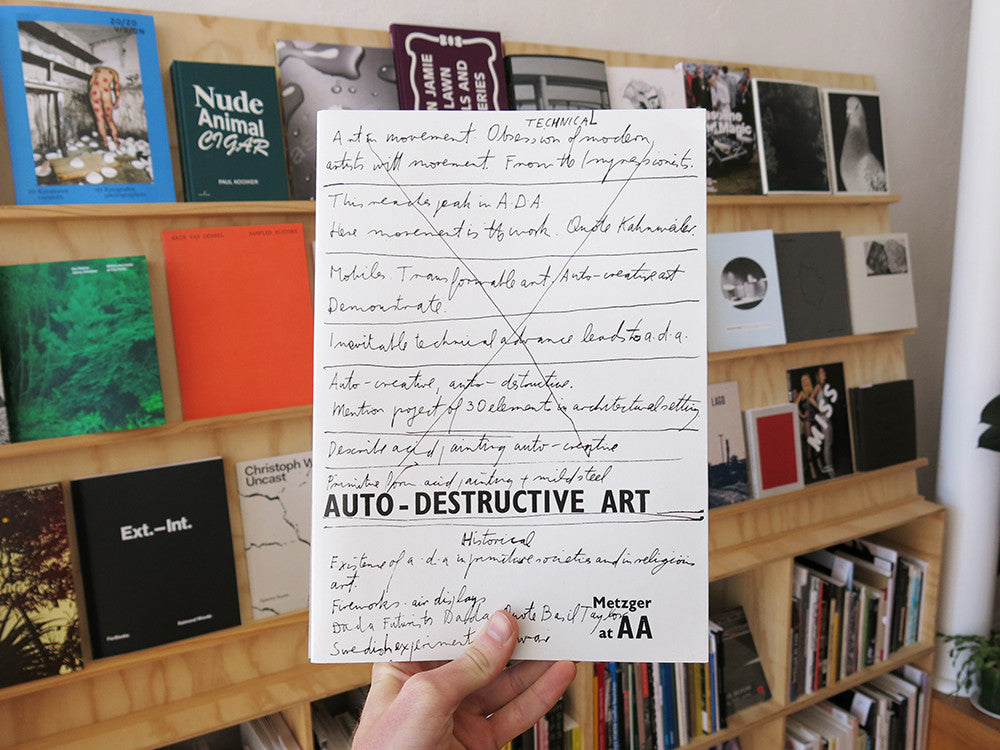 20/20
VISION
Nude
Animal
CIGAR
PAUL KOOIKER
N JAMIE
LAWN
LS AND
ERIES
TECHNICAL
Art in movement. Obsession of modern
artists with movement. From the Impressionists.
This reaches peak in A.D.A
Here movement is the work. Quote Kahnweiler.
Mobiles Transformable art. Auto-creative art
Demonstrate.
Inevitable technical advance leads to a.d.a.
Auto-creative, auto-destructive.
Mention project of 30 element in architectural setting
Describe acid painting auto-creative
Primitive form acid painting + mild steel
AUTO-DESTRUCTIVE ART
Historical
Existence of a-d-a in primitive societies and in religious
art.
Fireworks. air displays
Dada Futurists Dada Quote Basil Taylor
Swedish experiment war
Metzger
at AA
KRIS VAN DESSEL
SAMPLED HISTORY
Ext.—Int.
Christoph W
Uncast
LAGO
MISS